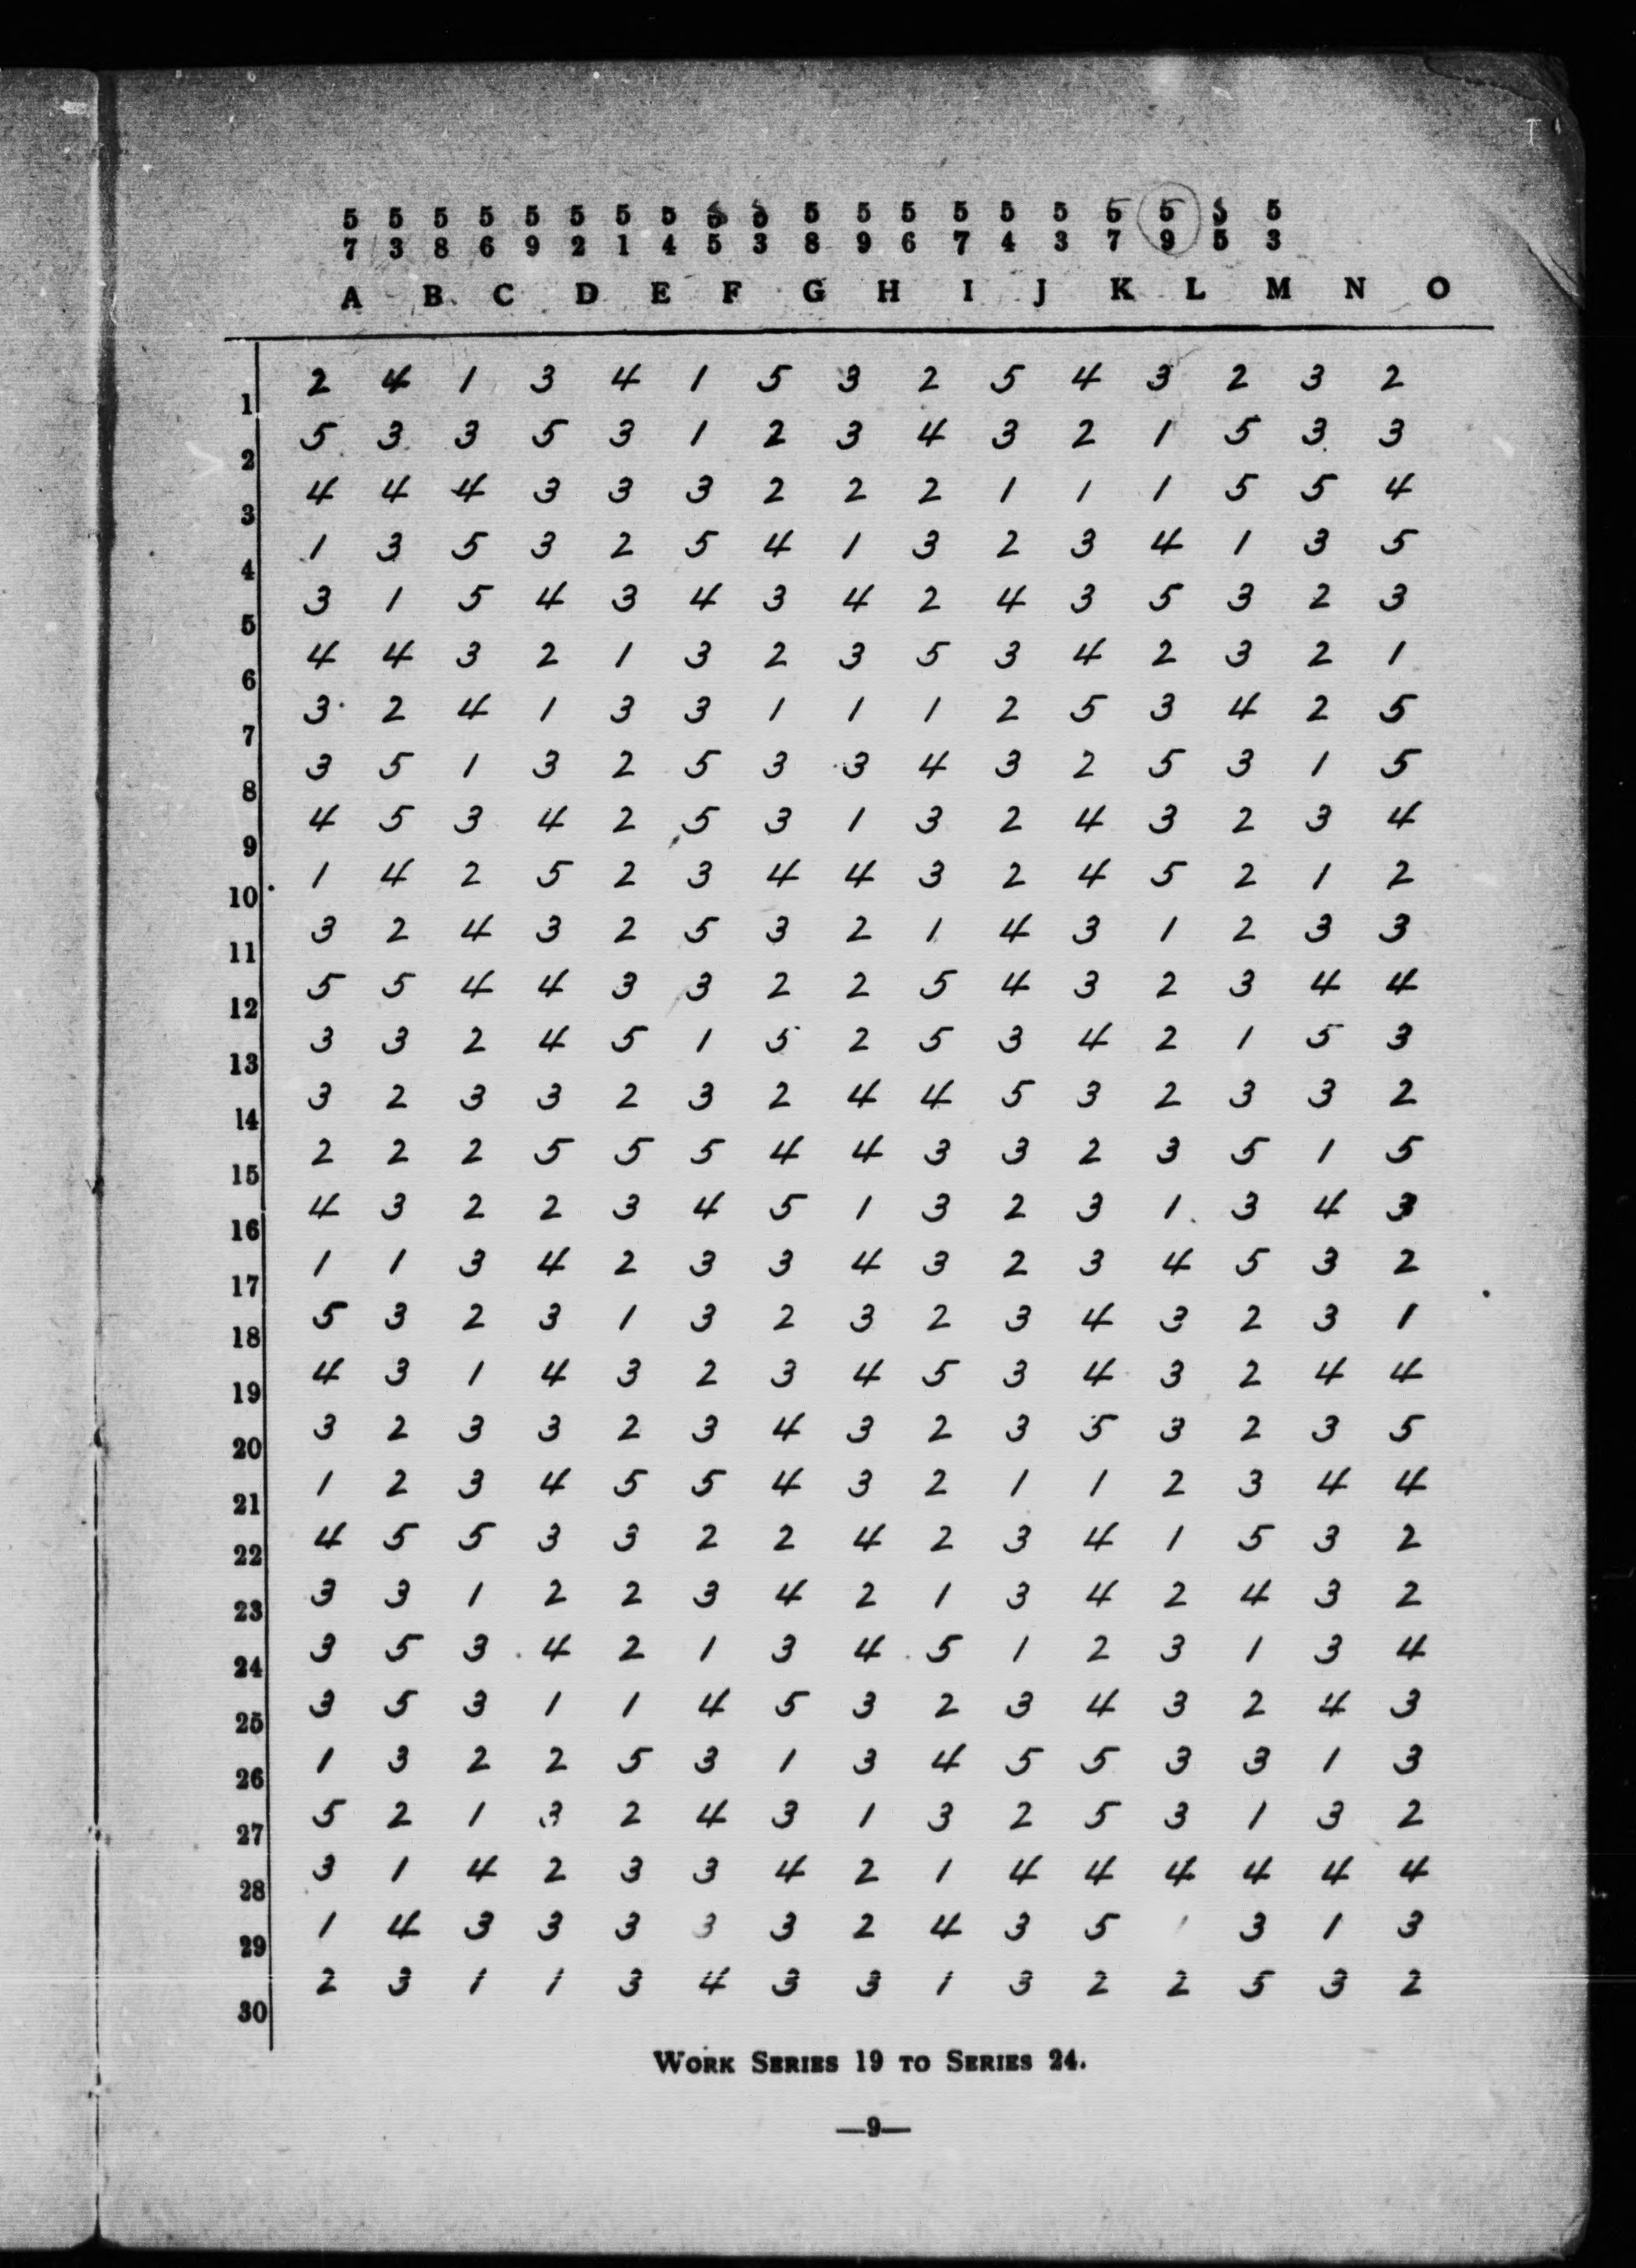 5 5 5 5 5 5 5 5 5 5 5 5 5 5 5 5 5 5 5 5
7 3 8 6 9 2 1 4 5 3 8 9 6 7 4 3 7 9 5 3
A B C D E F G H I J K L M N O
1 2 4 1 3 4 1 5 3 2 5 4 3 2 3 2
2 5 3 3 5 3 1 2 3 4 3 2 1 5 3 3
3 4 4 4 3 3 3 2 2 2 1 1 1 5 5 4
4 1 3 5 3 2 5 4 1 3 2 3 4 1 3 5
5 3 1 5 4 3 4 3 4 2 4 3 5 3 2 3
6 4 4 3 2 1 3 2 3 5 3 4 2 3 2 1
7 3 2 4 1 3 3 1 1 1 2 5 3 4 2 5
8 3 5 1 3 2 5 3 3 4 3 2 5 3 1 5
9 4 5 3 4 2 5 3 1 3 2 4 3 2 3 4
10 1 4 2 5 2 3 4 4 3 2 4 5 2 1 2
11 3 2 4 3 2 5 3 2 1 4 3 1 2 3 3
12 5 5 4 4 3 3 2 2 5 4 3 2 3 4 4
13 3 3 2 4 5 1 5 2 5 3 4 2 1 5 3
14 3 2 3 3 2 3 2 4 4 5 3 2 3 3 2
15 2 2 2 5 5 5 4 4 3 3 2 3 5 1 5
16 4 3 2 2 3 4 5 1 3 2 3 1 3 4 3
17 1 1 3 4 2 3 3 4 3 2 3 4 5 3 2
18 5 3 2 3 1 3 2 3 2 3 4 3 2 3 1
19 4 3 1 4 3 2 3 4 5 3 4 3 2 4 4
20 3 2 3 3 2 3 4 3 2 3 5 3 2 3 5
21 1 2 3 4 5 5 4 3 2 1 1 2 3 4 4
22 4 5 5 3 3 2 2 4 2 3 4 1 5 3 2
23 3 3 1 2 2 3 4 2 1 3 4 2 4 3 2
24 3 5 3 4 2 1 3 4 5 1 2 3 1 3 4
25 3 5 3 1 1 4 5 3 2 3 4 3 2 4 3
26 1 3 2 2 5 3 1 3 4 5 5 3 3 1 3
27 5 2 1 3 2 4 3 1 3 2 5 3 1 3 2
28 3 1 4 2 3 3 4 2 1 4 4 4 4 4 4
29 1 4 3 3 3 3 3 2 4 3 5 1 3 1 3
30 2 3 1 1 3 4 3 3 1 3 2 2 5 3 2
WORK SERIES 19 TO SERIES 24.
—9—